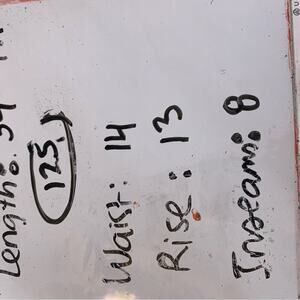 Length: 34
125
Waist: 14
Rise: 13
Inseam: 8